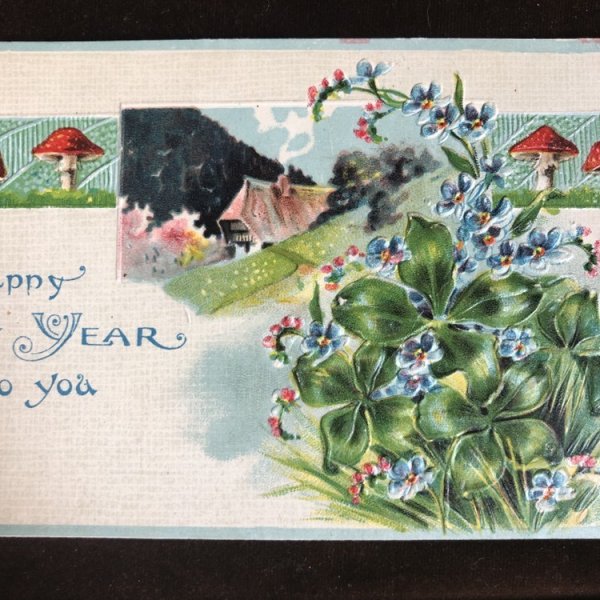 appy
Year
o you